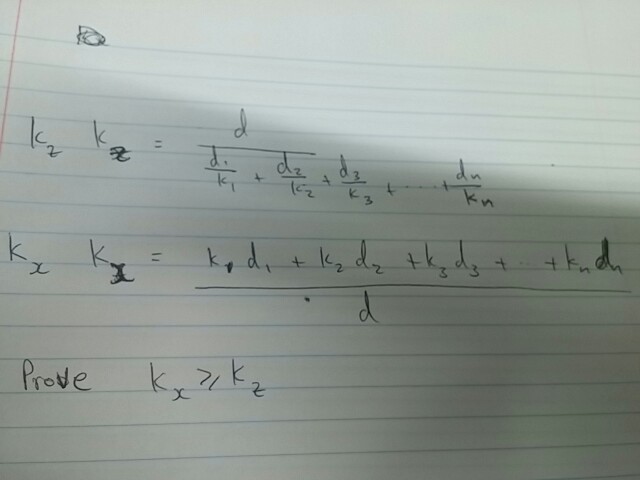 k_z k_z = d / (d_1/k_1 + d_2/k_2 + d_3/k_3 + ... + d_n/k_n)
k_x k_x = (k_1 d_1 + k_2 d_2 + k_3 d_3 + ... + k_n d_n) / d
Prove k_x ⩾ k_z